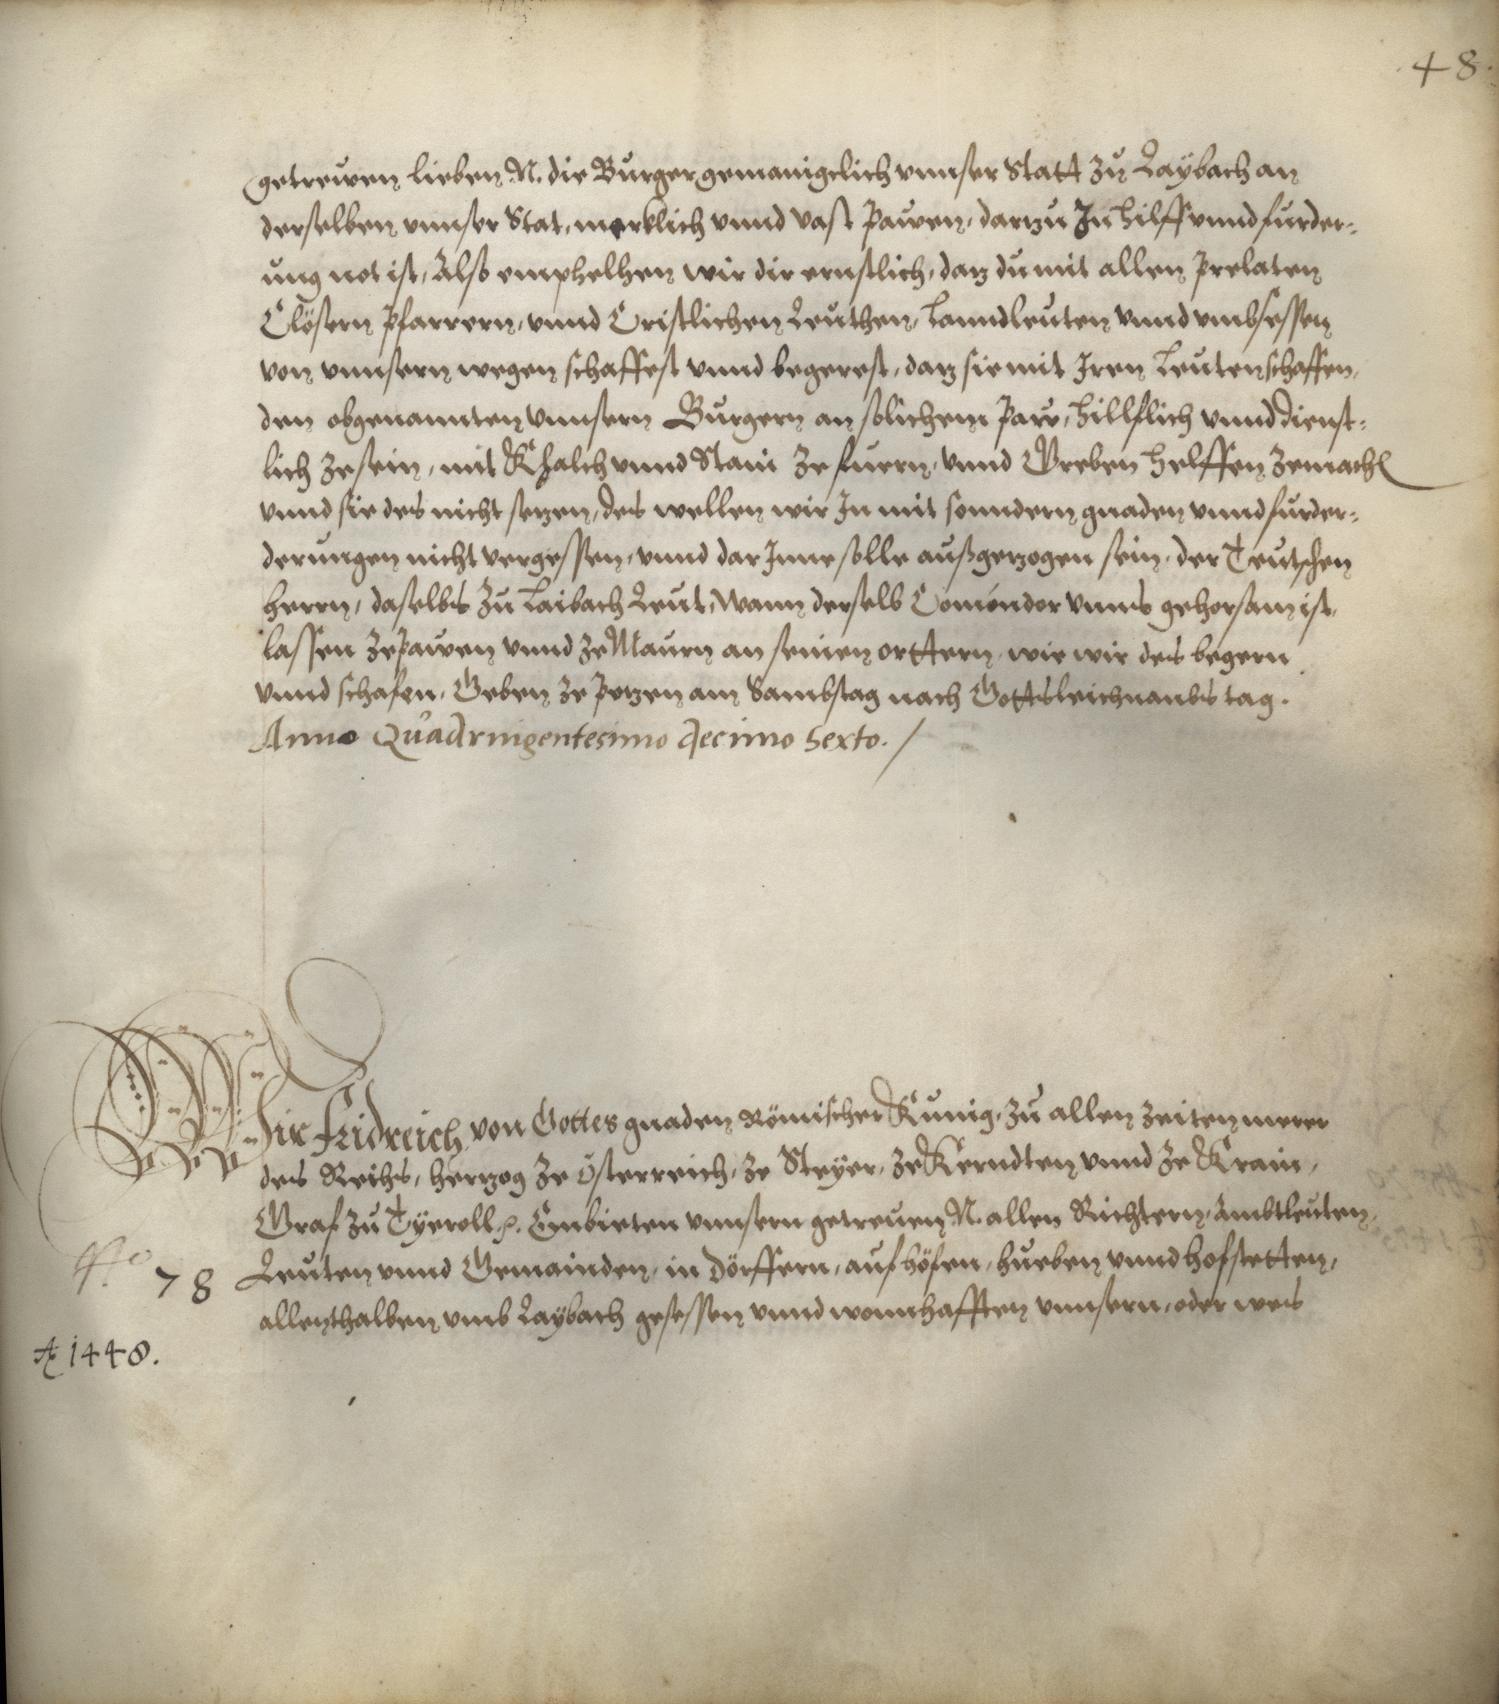 48.
getrewen lieben N. die Burger gemainigclich vnnser Statt zu Laÿbach an
derselben vnnser Stat, merklich vnnd vast pawen, darzu In hilff vnnd furder=
ung not ist, Also emphelhen wir dir ernstlich, daz du mit allen Prelaten
Clöstern Pfarrern, vnnd Cristlichen Leuthen, Lanndleuten vnnd vmbsessen
von vnnsern wegen schaffest vnnd begerest, daz sie mit Iren Leuten schaffen,
den obgenannten vnnsern Burgern an solichem Paw, hillflich vnnd dienst=
lich ze sein, mit Khalch vnnd Stain ze fuern, vnnd Greben helffen zemachen
vnnd sie des nicht setzen, des wellen wir In mit sonndern gnaden vnnd furder=
derungen nicht vergessen, vnnd dar Inne solle außgezogen sein, der Teutschen
herrn, daselbs zu Laibach Leut, Wann derselb Comendor vnns gehorsam ist,
lassen ze pawen vnnd ze Maurn an seinen orttern, wie wir des begern
vnnd schafen, Geben ze Potzen am Sambstag nach Gottsleichnambs tag.
Anno Quadringentesimo decimo sexto. /
Wir Fridreich von Gottes gnaden Römischer Kunig, zu allen zeiten merer
des Reichs, hertzog ze Österreich, ze Steÿer, ze Kerndten vnnd ze Krain,
Graf zu Tÿeroll etc. Embieten vnnsern getreuen N. allen Richtern, Ambtleuten,
Leuten vnnd Gemainden, in Dörffern, auf höfen, hueben vnnd hofstetten,
78
allenthalben vmb Laybach gesessen vnnd wonnhafften vnnsern, oder wes
A 1448.